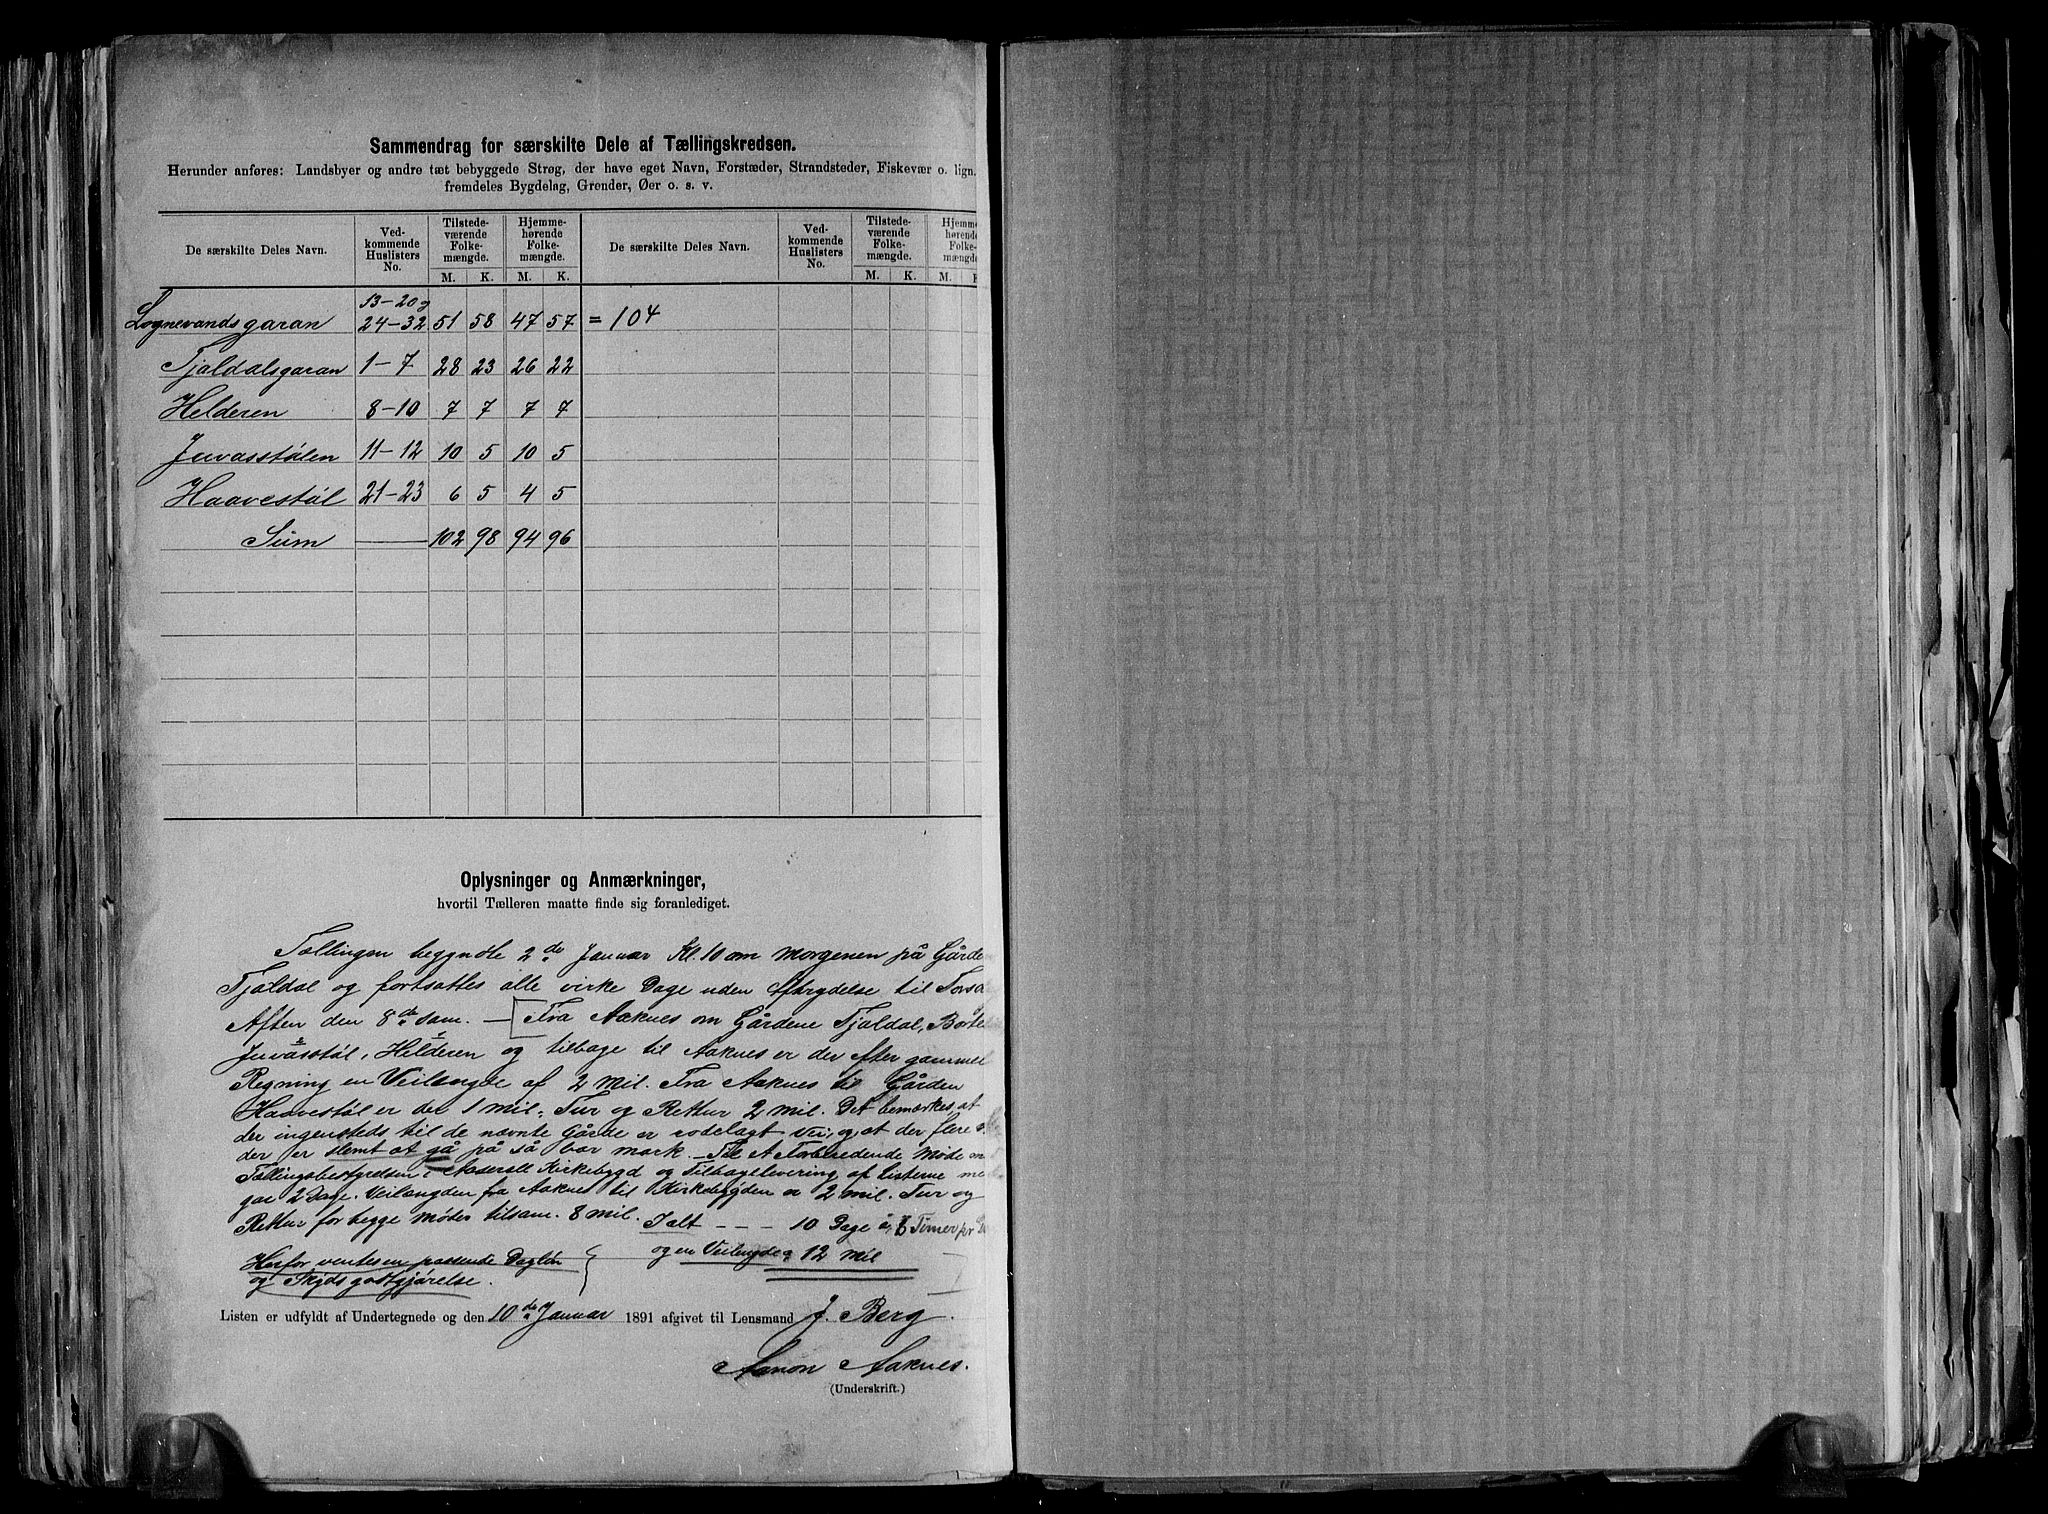 Sammendrag for særskilte Dele af Tællingskredsen.
Herunder anføres: Landsbyer og andre tæt bebyggede Strøg, der have eget Navn, Forstæder, Strandsteder, Fiskevær o. lign.
fremdeles Bygdelag, Grender, Øer o. s. v.
De særskilte Deles Navn. Ved-kommende Huslisters No. Tilstede-værende Folke-mængde. M. K. Hjemme-hørende Folke-mængde. M. K. De særskilte Deles Navn. Ved-kommende Huslisters No. Tilstede-værende Folke-mængde. M. K. Hjemme-hørende Folke-mængde. M.
13-20 og
Lognevandsgaran 24-32 51 58 47 57 = 104
Tjaldalsgaran 1-7 28 23 26 22
Helderen 8-10 7 7 7 7
Juvasstølen 11-12 10 5 10 5
Haavestøl 21-23 6 5 4 5
Sum 102 98 94 96
Oplysninger og Anmærkninger,
hvortil Tælleren maatte finde sig foranlediget.
Tællingen begynte 2de Januar Kl. 10 om morgenen på Gården
Tjaldal og fortsattes alle virke Dage uden Afbrydelse til Torsd
Aften den 8de sam. — Fra Aaknes om Gårdene Tjaldal,
Juvasstøl, Helderen og tilbage til Aaknes er der efter gammel
Regning en Veilængde af 2 Mil. Fra Aaknes til Gården
Haavestøl er der 1 mil. Tur og Rettur 2 mil. Det bemærkes, at
der ingensteds til de nævnte Gårde er rodelagt Vei, og at der flere
der er slemt at gå på så bar mark. — Til A Forberedende Møde
Tællingsbestyrelsen i Aaseral Kirkebygd og Tilbagelevering af Listerne
2 Dage. Veilængden fra Aaknes til Kirkebygden er 2 mil. Tur og
Rettur for begge Møder tilsam. 8 mil. Ialt - - - 10 Dage à 6 Timer pr
og en Veilengde 12 Mil
Herfor ventes en passende Dagløn
og Skydsgodtgjørelse.
Listen er udfyldt af Undertegnede og den 10de Januar 1891 afgivet til Lensmand J. Berg.
Aanon Aaknes.
(Underskrift.)